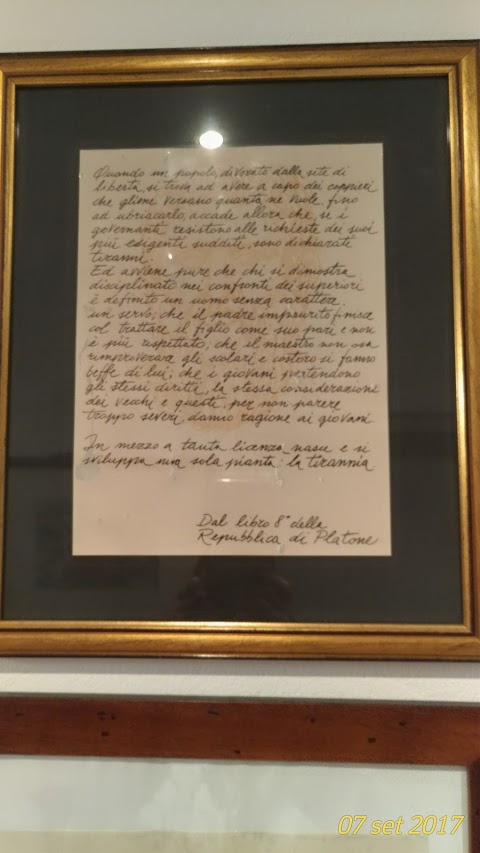 Quando un popolo, divorato dalla sete di
libertà, si trova ad avere a capo dei coppieri
che gliene versano quanta ne vuole, fino
ad ubriacarlo, accade allora che, se i
governanti resistono alle richieste dei suoi
più esigenti sudditi, sono dichiarati
tiranni.
Ed avviene pure che chi si dimostra
disciplinato nei confronti dei superiori
è definito un uomo senza carattere,
un servo; che il padre impaurito finisce
col trattare il figlio come suo pari e non
è più rispettato; che il maestro non osa
rimproverare gli scolari e costoro si fanno
beffe di lui; che i giovani pretendono
gli stessi diritti, la stessa considerazione
dei vecchi e questi, per non parere
troppo severi, danno ragione ai giovani.
In mezzo a tanta licenza nasce e si
sviluppa una sola pianta: la tirannia
Dal libro 8° della
Repubblica di Platone
07 set 2017